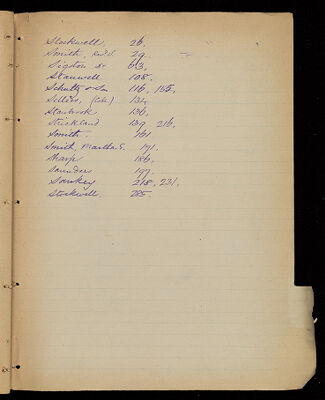 Stockwell. 26.
Smith, Rev'd. 29.
Sigston Dr 63.
Stanwell 108.
Schultz & Son 116, 155,
Sellers, (Cha.) 134,
Starbrook 136,
Strickland 139, 216,
Smith. 161
Smith, Martha S. 171,
Sharp 186,
Saunders 197,
Sankey 218, 231,
Stockwell. 285.